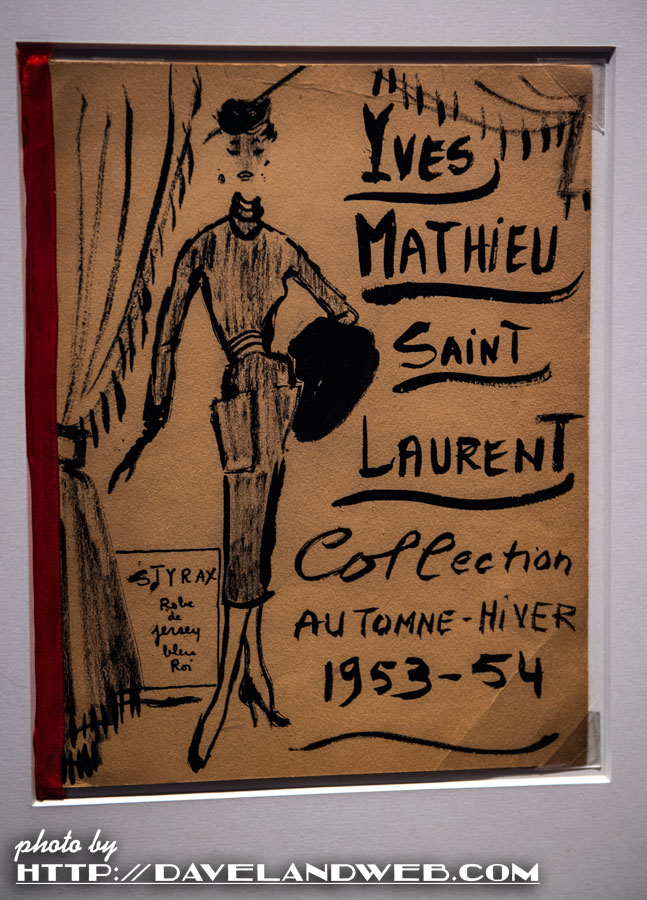 YVES
MATHiEU
SAiNT
LAURENT
Collection
AUTOMNE-HiVER
1953-54
STYRAX
Robe
de
jersey
bleu
Roi
photo by
HTTP://DAVELANDWEB.COM